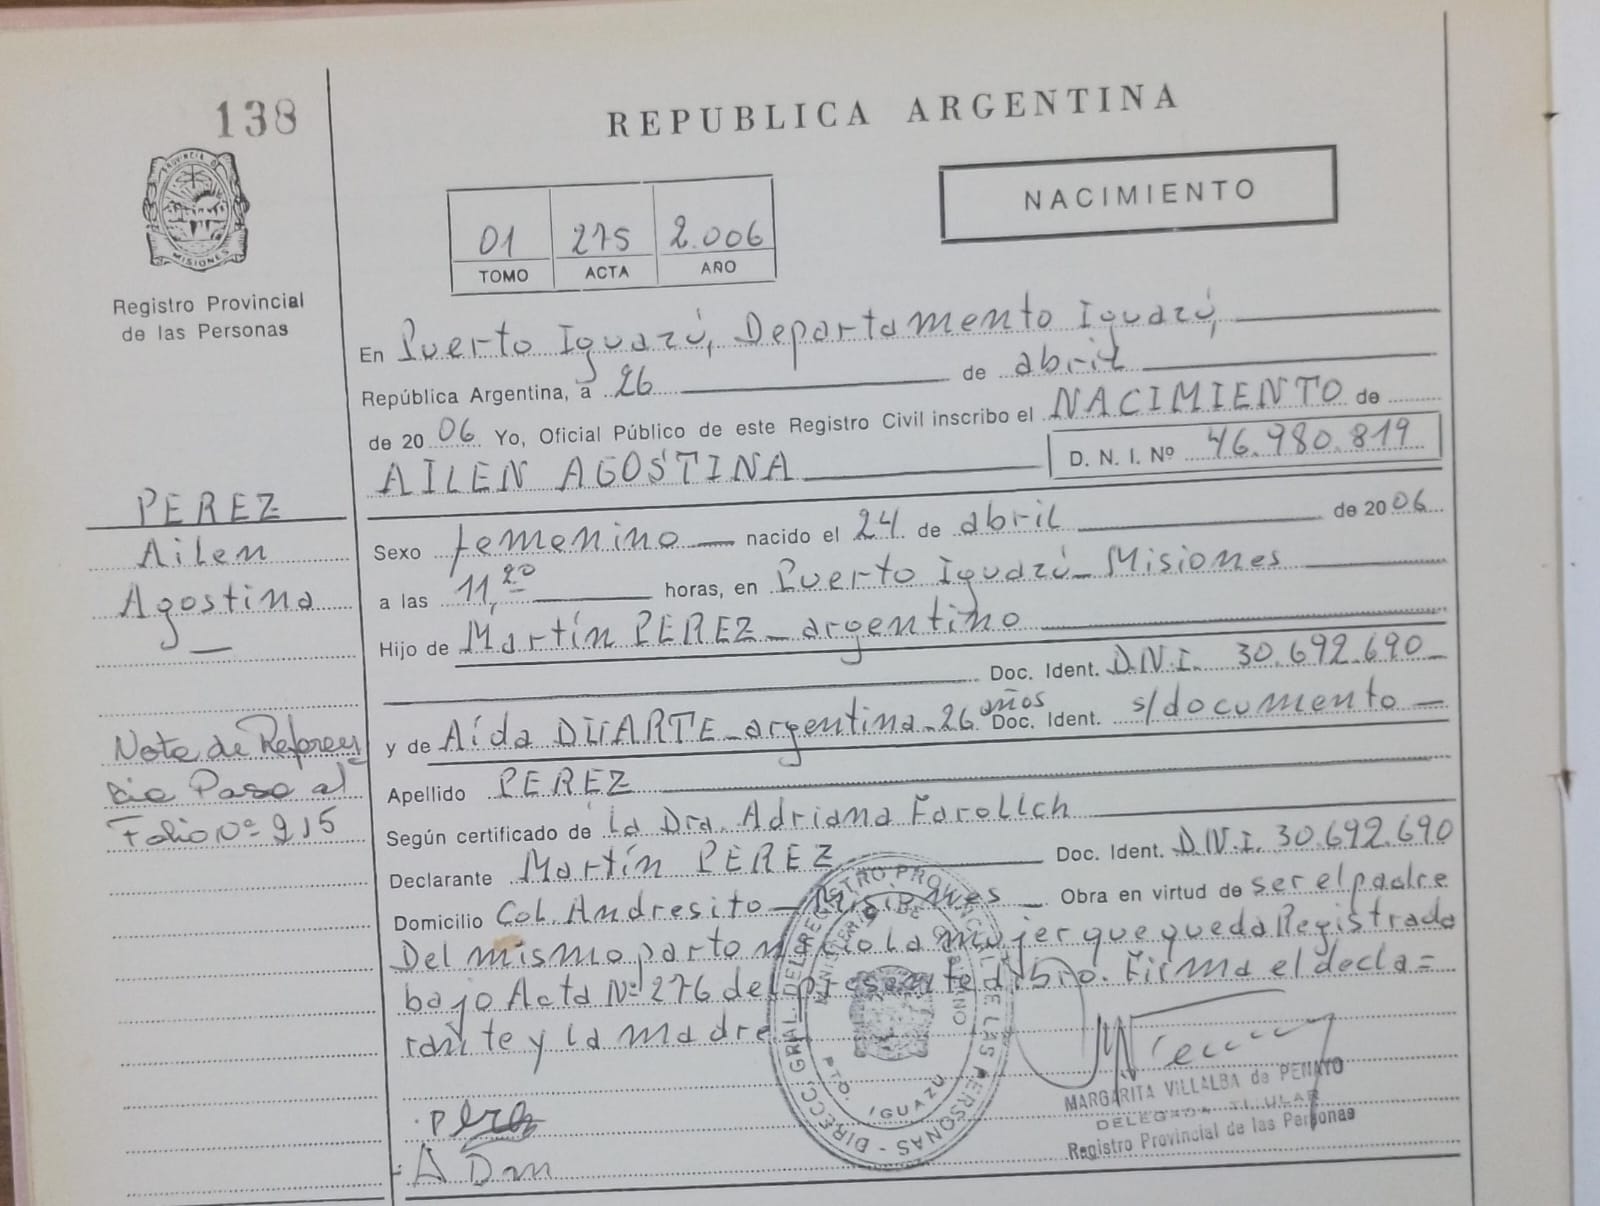 138
REPUBLICA ARGENTINA
PROVINCIA DE MISIONES
Registro Provincial
de las Personas
NACIMIENTO
01 275 2.006
TOMO ACTA AÑO
En Puerto Iguazú, Departamento Iguazú,
República Argentina, a 26 de abril
de 2006 Yo, Oficial Público de este Registro Civil inscribo el NACIMIENTO de
AILEN AGOSTINA D. N. I. Nº 46.980.819
PEREZ
Ailen
Agostina
Sexo femenino nacido el 24 de abril de 2006
a las 11,20 horas, en Puerto Iguazú - Misiones
Hijo de Martín PEREZ - argentino
Doc. Ident. D.N.I. 30.692.690
y de Aída DUARTE - argentina - 26 años Doc. Ident. s/documento
Apellido PEREZ
Según certificado de la Dra. Adriana Farollch
Declarante Martín PEREZ Doc. Ident. D.N.I. 30.692.690
Domicilio Col. Andresito - Misiones Obra en virtud de ser el padre
Del mismo parto nació la mujer que queda Registrada
bajo Acta Nº 276 del presente libro. Firma el decla=
rante y la madre
Nota de Referen
cia Pase al
Folio Nº 215
DIRECC. GRAL. DEL REGISTRO PROVINCIAL DE LAS PERSONAS
MINISTERIO DE GOBIERNO
PTO. IGUAZU
MARGARITA VILLALBA de PENAYO
DELEGADA TITULAR
Registro Provincial de las Personas